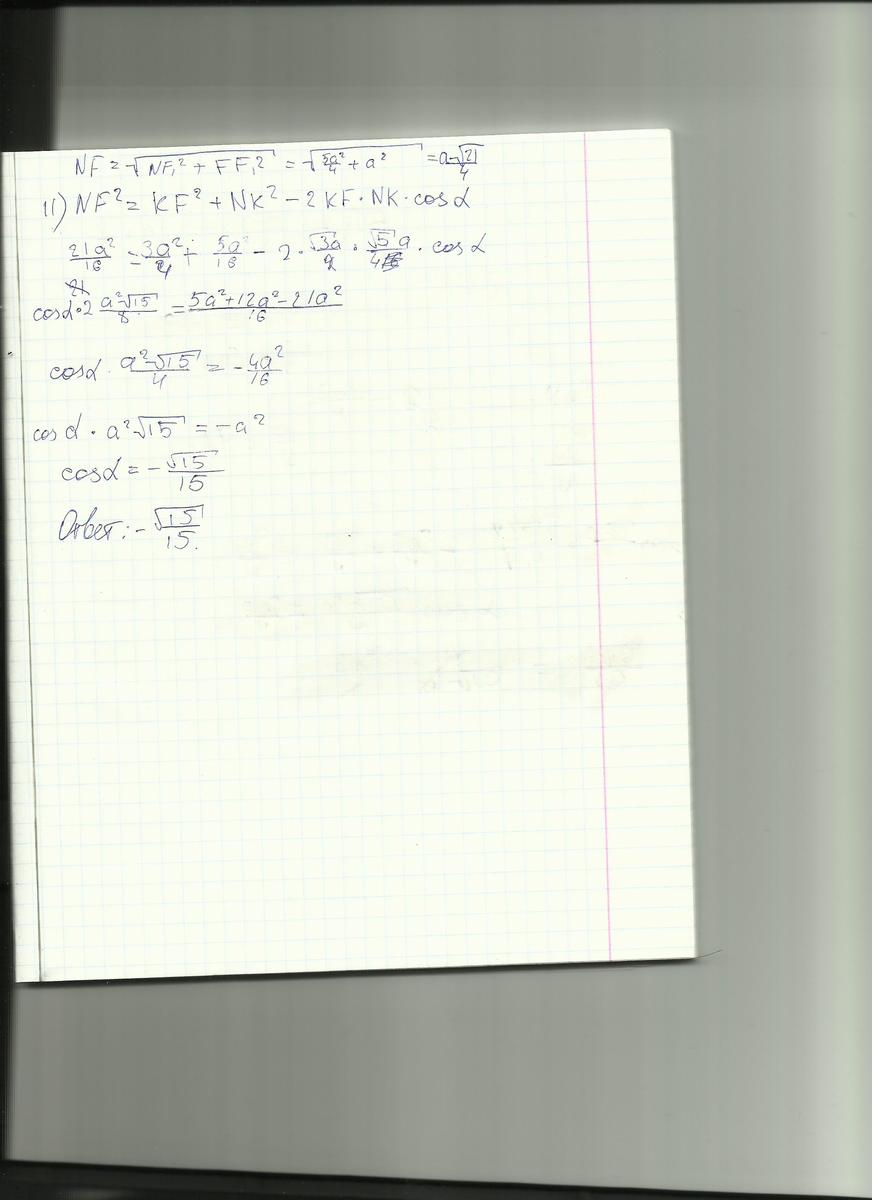 NF = √(NF₁² + FF₁²) = √(5a²/4 + a²) = a√21/4
11) NF² = KF² + NK² - 2KF · NK · cos α
21a²/16 = 3a²/4 + 5a²/16 - 2 · √3a/2 · √5a/4 · cos α
cos α · 2 a²√15/8 = (5a² + 12a² - 21a²)/16
cos α · a²√15/4 = -4a²/16
cos α · a²√15 = -a²
cos α = -√15/15
Ответ: -√15/15.